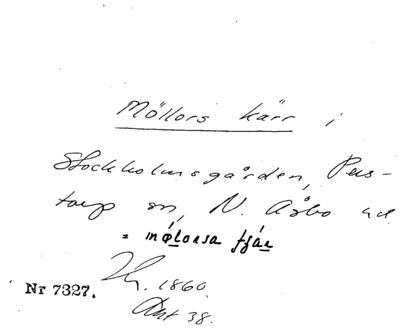 Möllors kärr i
Stockholmsgården, Pers-
torp sn, N. Åsbo hd.
= mǿlorsa tjár
1860.
Nr 7327.
Ant 38.